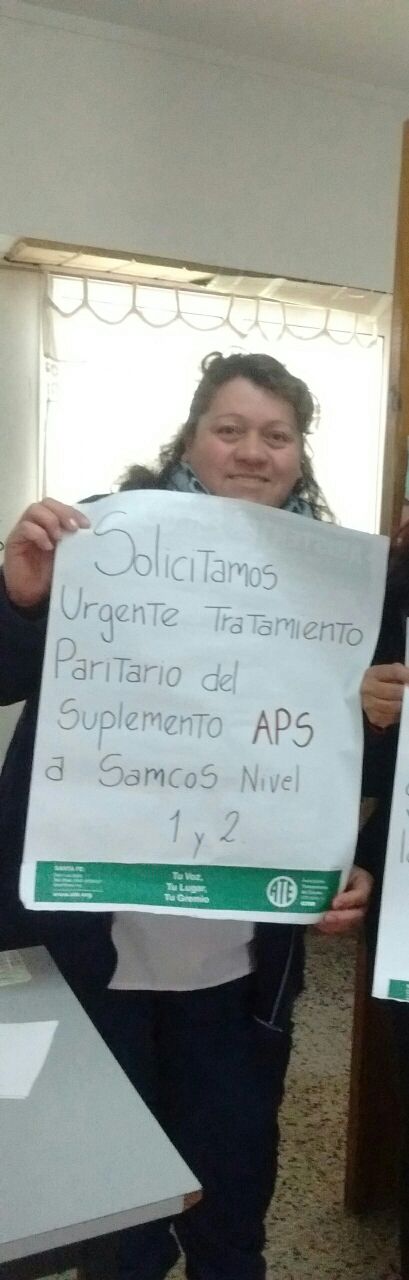 Solicitamos
Urgente Tratamiento
Paritario del
Suplemento APS
a Samcos Nivel
1 y 2.
SANTA FE:
www.ate.org
Tu Voz.
Tu Lugar.
Tu Gremio
ATE